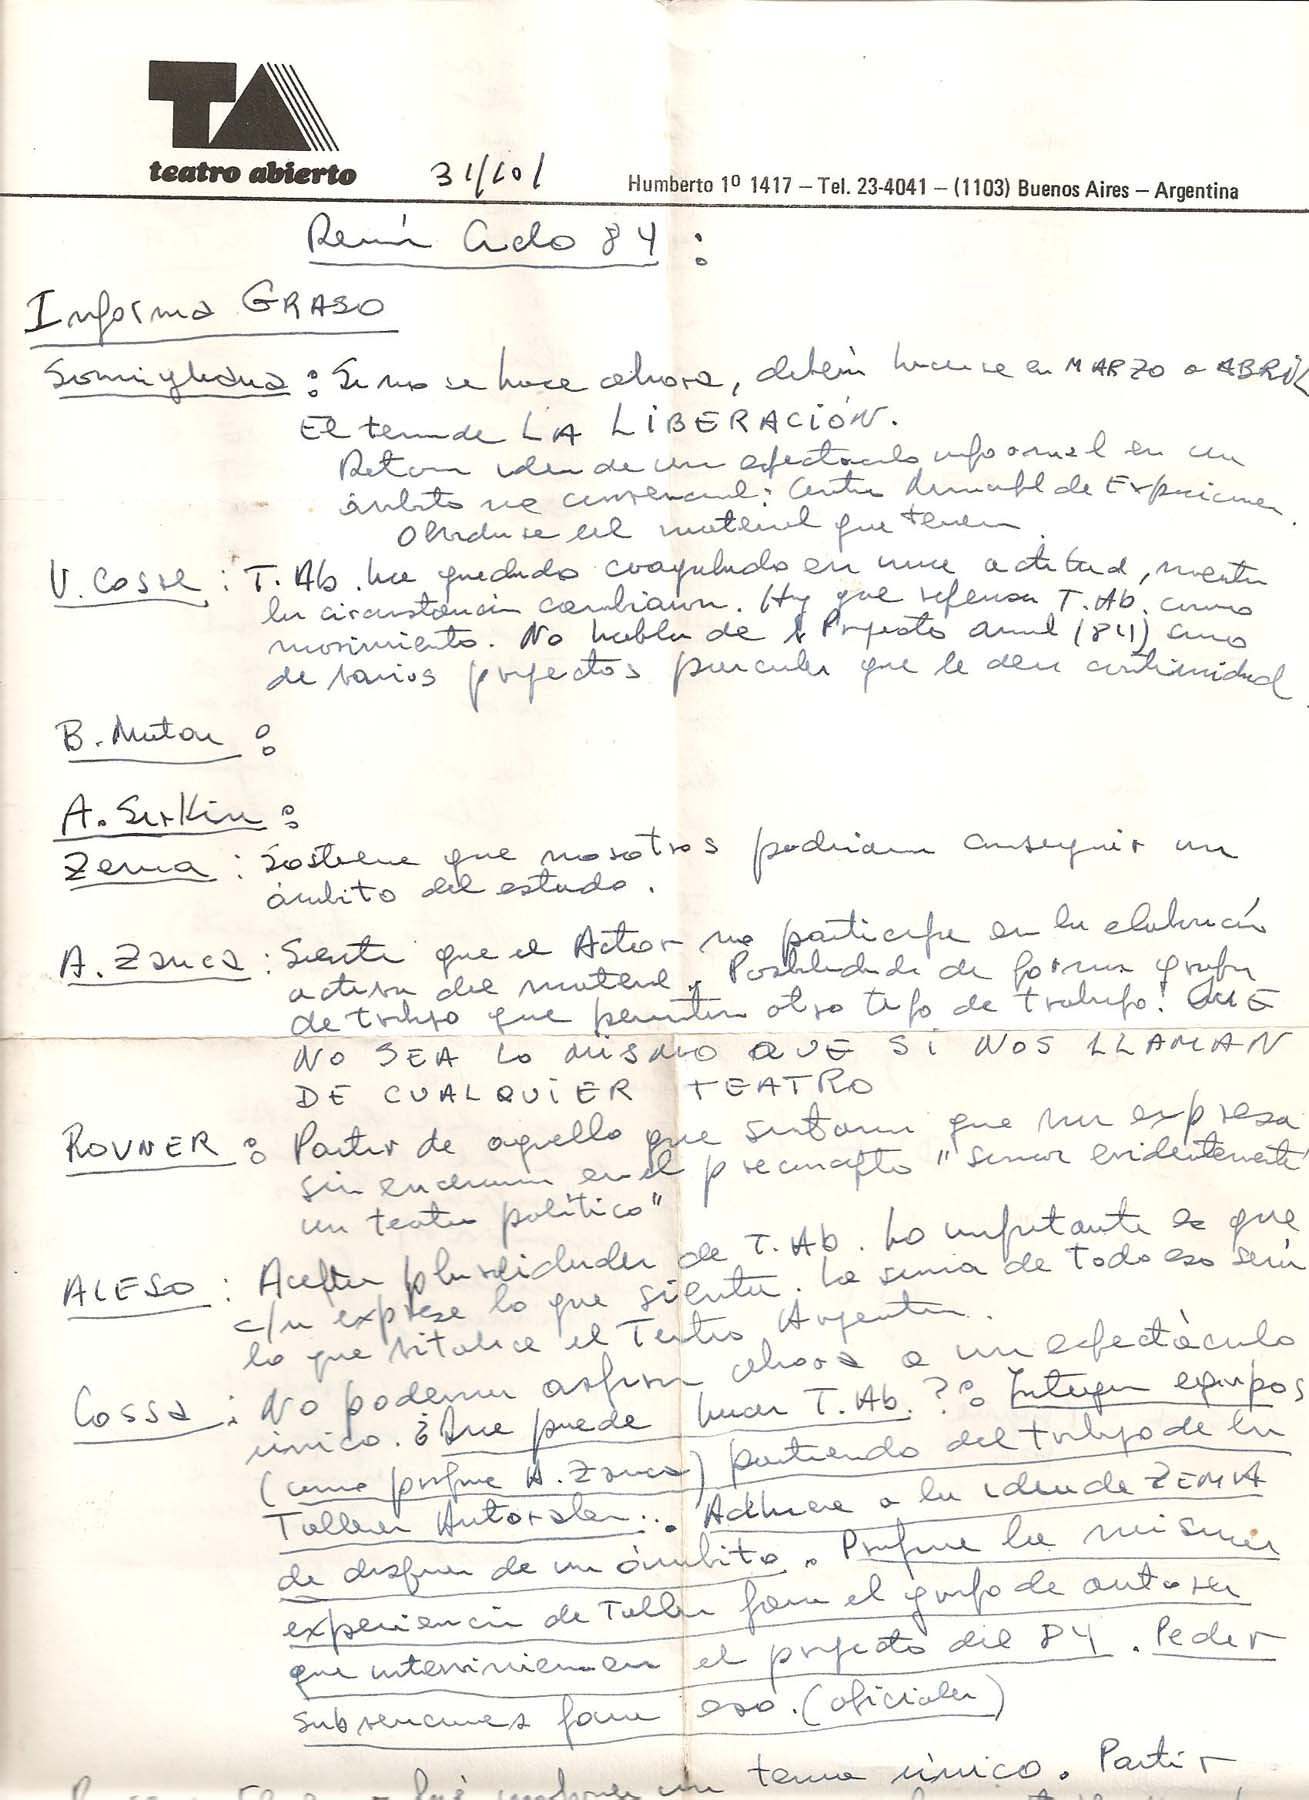 TA
teatro abierto
31/10/
Humberto 1º 1417 – Tel. 23-4041 – (1103) Buenos Aires – Argentina
Ciclo 84 :
Informa GRASO
Somigliana : Si no se hace ahora, hacerse en MARZO o ABRIL
El tema de LA LIBERACIÓN.
idea de un espectáculo informal en un
ámbito no convencional: Centro Municipal de Exposiciones.
del material que tienen.
V. Cosse : T. Ab. ha quedado coagulado en una actitud,
las circunstancias cambiaron. Hay que repensar T. Ab. como
movimiento. No hablar de Proyecto anual (84) sino
de varios proyectos que le den continuidad.
B. Matar :
A. Serkin :
Zema : Sostiene que nosotros podríamos conseguir un
ámbito del estado.
A. Zanca : Siente que el Actor no participa en la elaboración
activa del material. Posibilidad de formar grupos
de trabajo que permitan otro tipo de trabajo! QUE
NO SEA LO MISMO QUE SI NOS LLAMAN
DE CUALQUIER TEATRO
ROVNER : Partir de aquello que sintamos que nos expresa
sin en el preconcepto "somos evidentemente
un teatro político"
ALESO : Aceptar pluralidades de T. Ab. Lo importante es que
c/u exprese lo que sienta. La suma de todo eso será
lo que vitalice el Teatro Argentino.
Cossa : No podemos aspirar ahora a un espectáculo
único. ¿Que puede hacer T. Ab. ?: Integrar equipos
(como propone A. Zanca) partiendo del trabajo de los
Talleres Autorales... Adhiere a la idea de ZEMA
de disponer de un ámbito. Propone la misma
experiencia de Taller para el grupo de autores
que intervinieron en el proyecto del 84. Pedir
subvenciones para eso. (oficiales)
un tema único. Partir